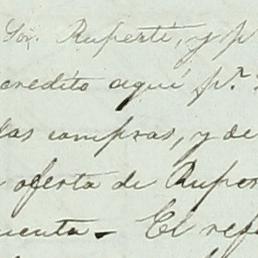 Sor. Ruperti, y p
credito aquí pr.
las compras, y de
oferta de Ruper
uenta - El ref